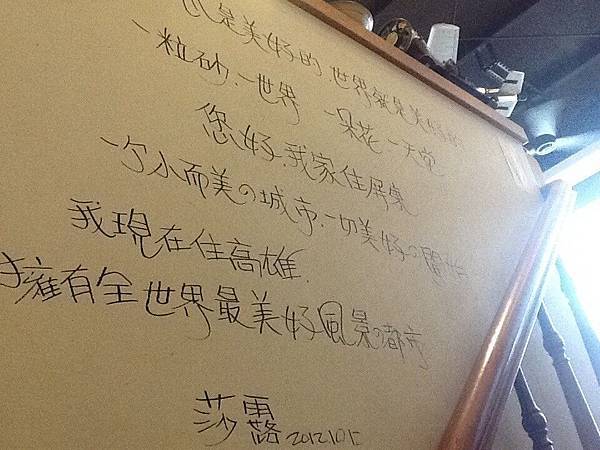 是美好的 世界就是美好的
一粒砂.一世界 一朵花 一天堂
您好.我家住屏東
一个小而美の城市.一切美好の開始
我現在住高雄.
擁有全世界最美好風景の都市
莎露 2012.10.15